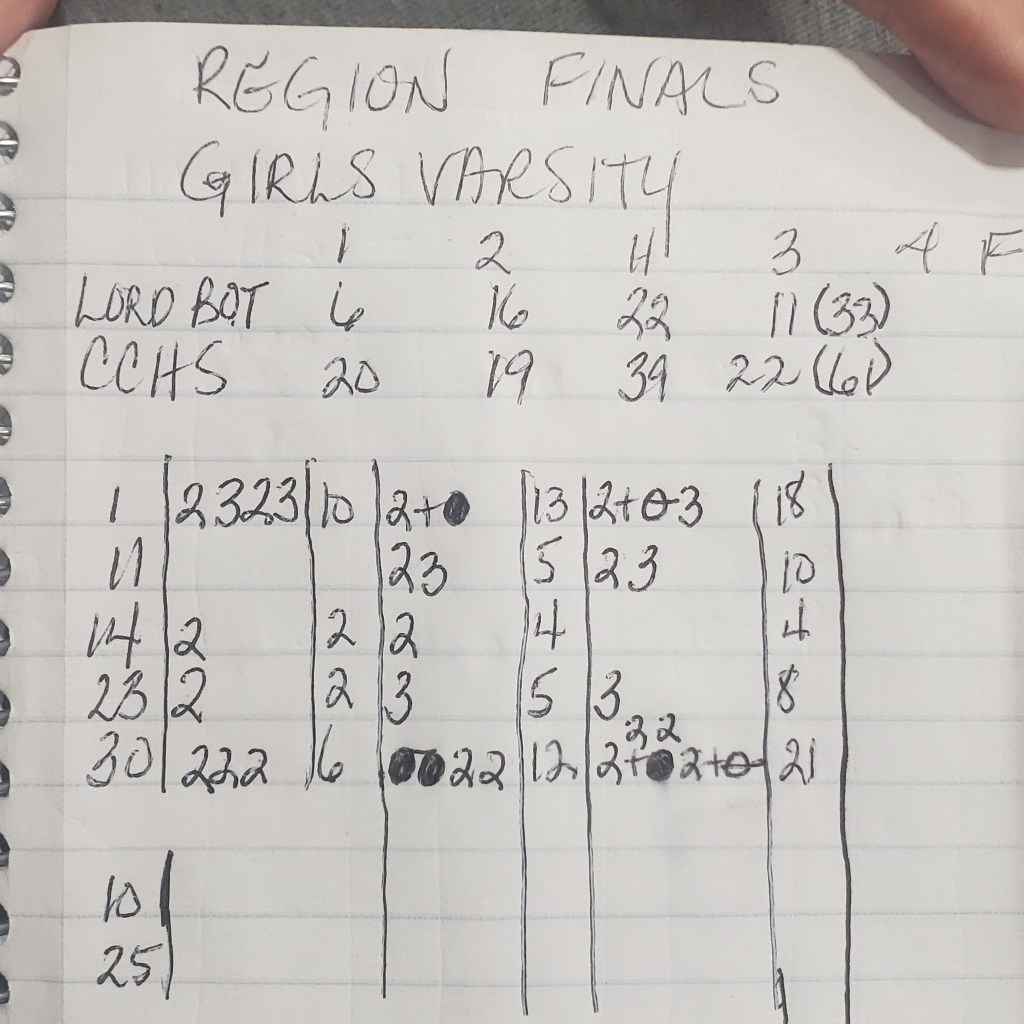 REGION FINALS
GIRLS VARSITY
1 2 H 3 4 F
LORD BOT 6 16 22 11 (33)
CCHS 20 19 39 22 (61)
1 2323 10 2+● 13 2+θ3 18
11 23 5 23 10
14 2 2 2 4 4
23 2 2 3 5 3 8
22
30 222 6 ●●22 12 2+●2+θ 21
10
25